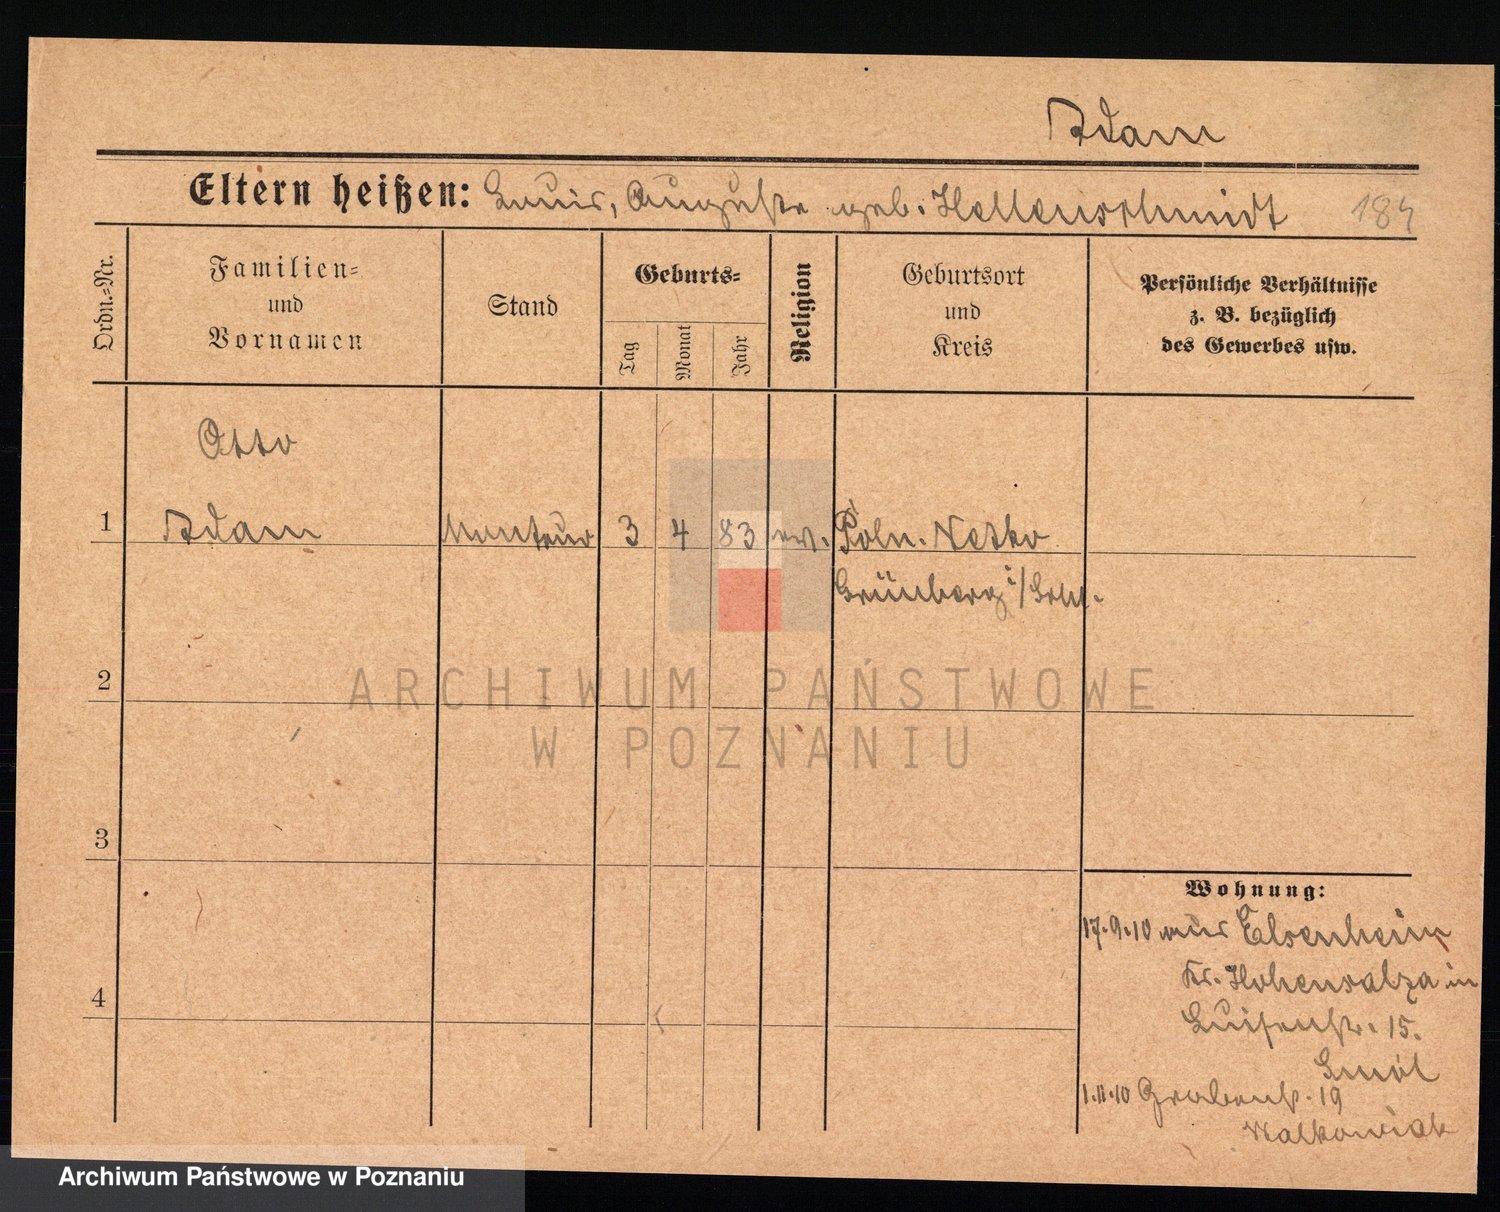 Adam
Eltern heißen: Louis, Auguste geb. Hellenschmidt 184
Ordn.-Nr.
Familien-
und
Vornamen
Stand
Geburts-
Tag
Monat
Jahr
Religion
Geburtsort
und
Kreis
Persönliche Verhältnisse
z. B. bezüglich
des Gewerbes usw.
Otto
1 Adam Monteur 3 4 83 ev. Poln. Netko
Grünberg i/Schl.
2
3
4
Wohnung:
17.9.10 aus Elsenheim
Kr. Hohensalza in
Luisenstr. 15.
1.11.10 Grabenstr. 19
Walkowiak
ARCHIWUM PAŃSTWOWE
W POZNANIU
Archiwum Państwowe w Poznaniu